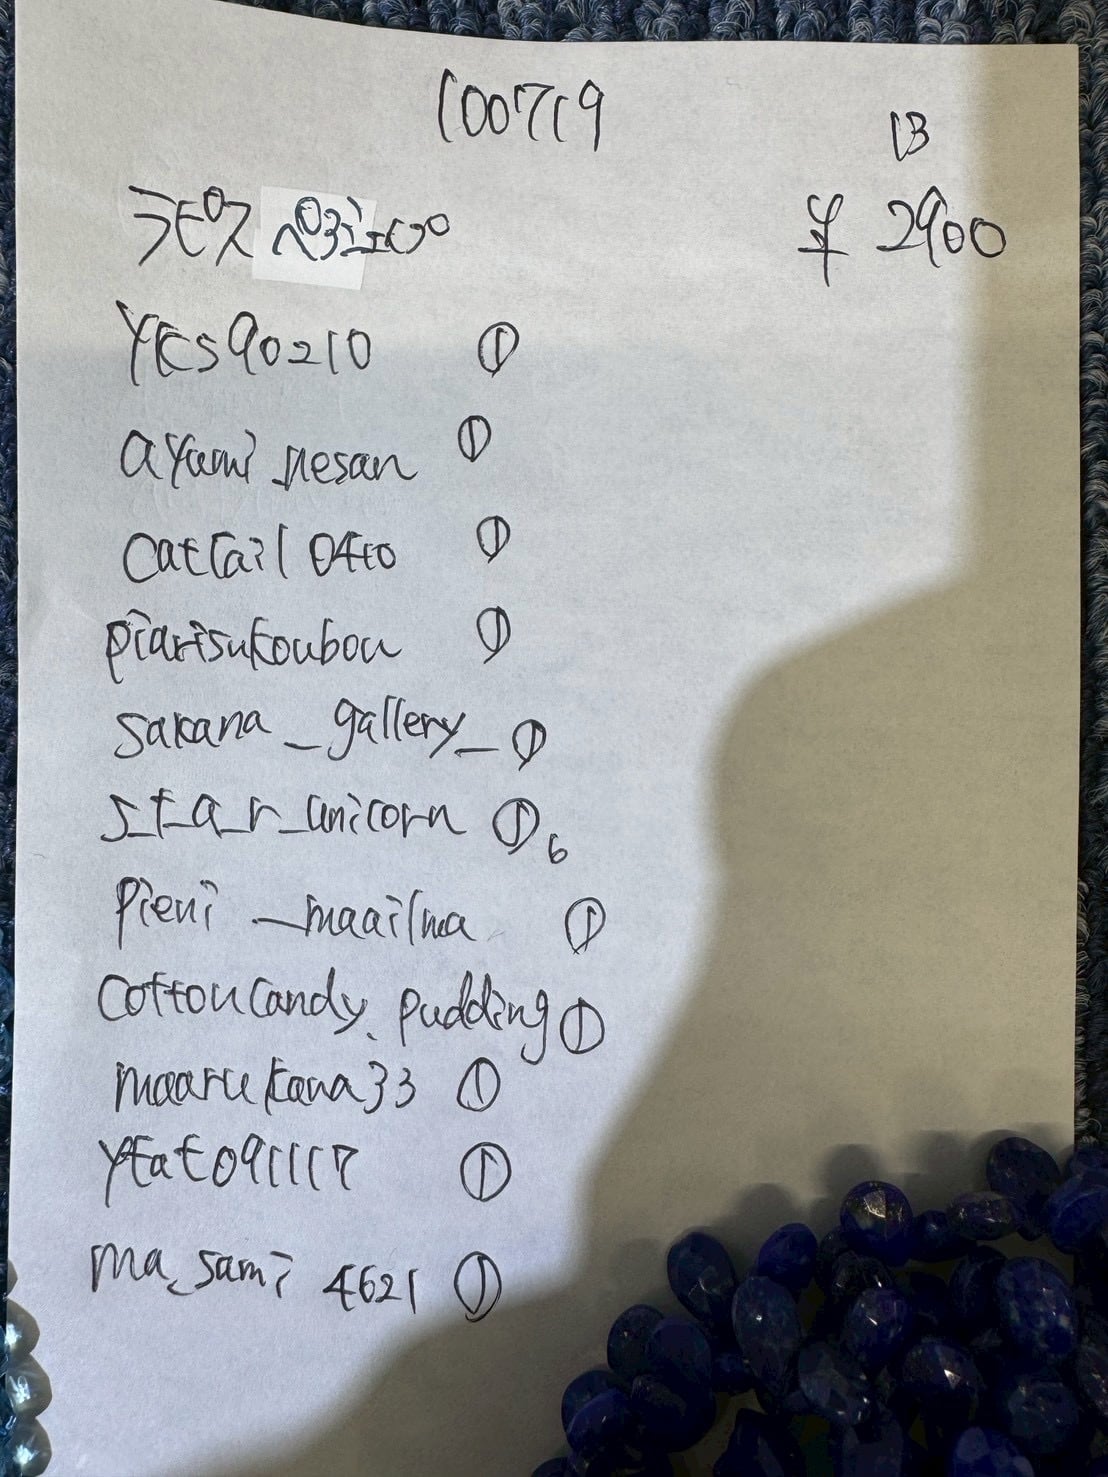 100719
13
ラピス ペアシェイプ ¥2900
yks90210 ①
ayami_nesan ①
cattail0410 ①
piarisukoubou ①
sakana_gallery_ ①
s_t_a_r_unicorn ① 6
pieni_maailma ①
cottoncandy.pudding ①
maarukana33 ①
ytat091117 ①
ma_sami4621 ①